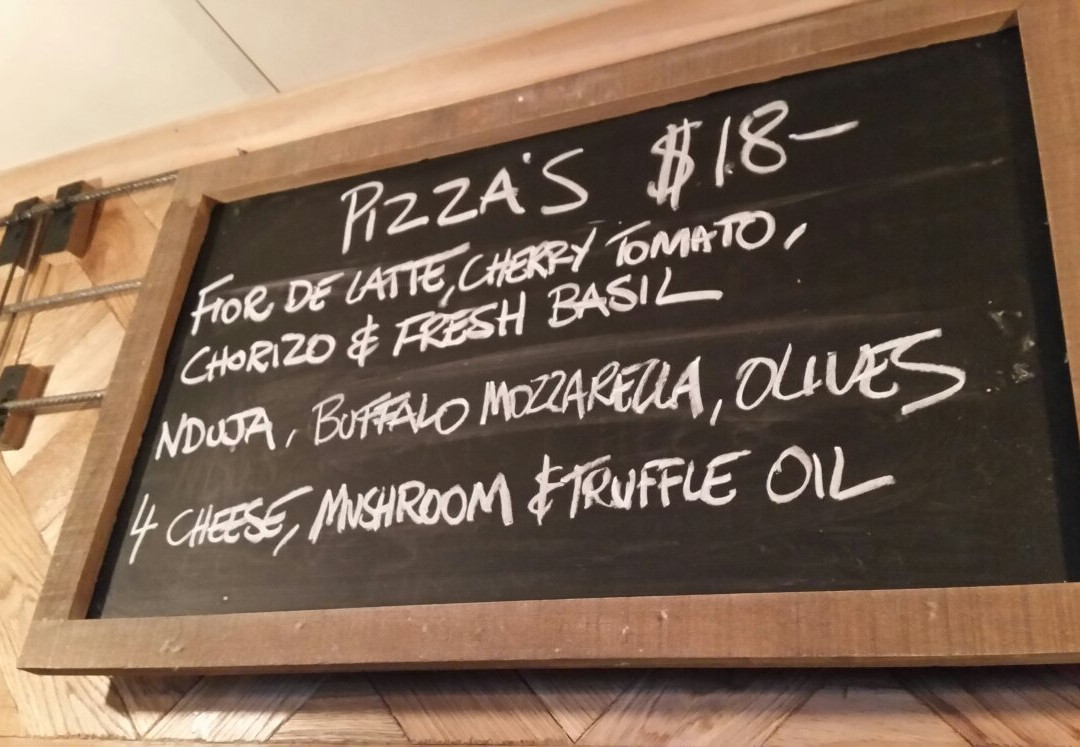 PIZZA'S $18-
FIOR DE LATTE, CHERRY TOMATO,
CHORIZO & FRESH BASIL
NDUJA, BUFFALO MOZZARELLA, OLIVES
4 CHEESE, MUSHROOM & TRUFFLE OIL